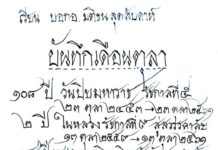 เรียน บอกอ. มติชน สุดสัปดาห์
บันทึกเดือนตุลา
๑๐๘ ปี วันปิยมหาราช รัชกาลที่๕
๒๓ ตุลา ๒๔๕๓ → ๒๓ ตุลา ๒๕๖๑
๒ ปี ในหลวงรัชกาลที่๙ สู่สวรรคาลัย
๑๓ ตุลา ๒๕๕๙ → ๑๓ ตุลา ๒๕๖๑